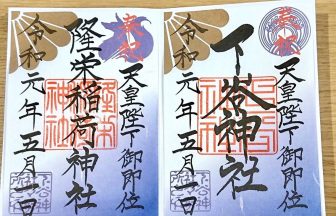 奉拝
天皇陛下御即位
下谷神社
令和元年五月一日
奉拝
天皇陛下御即位
隆栄稲荷神社
令和元年五月一日